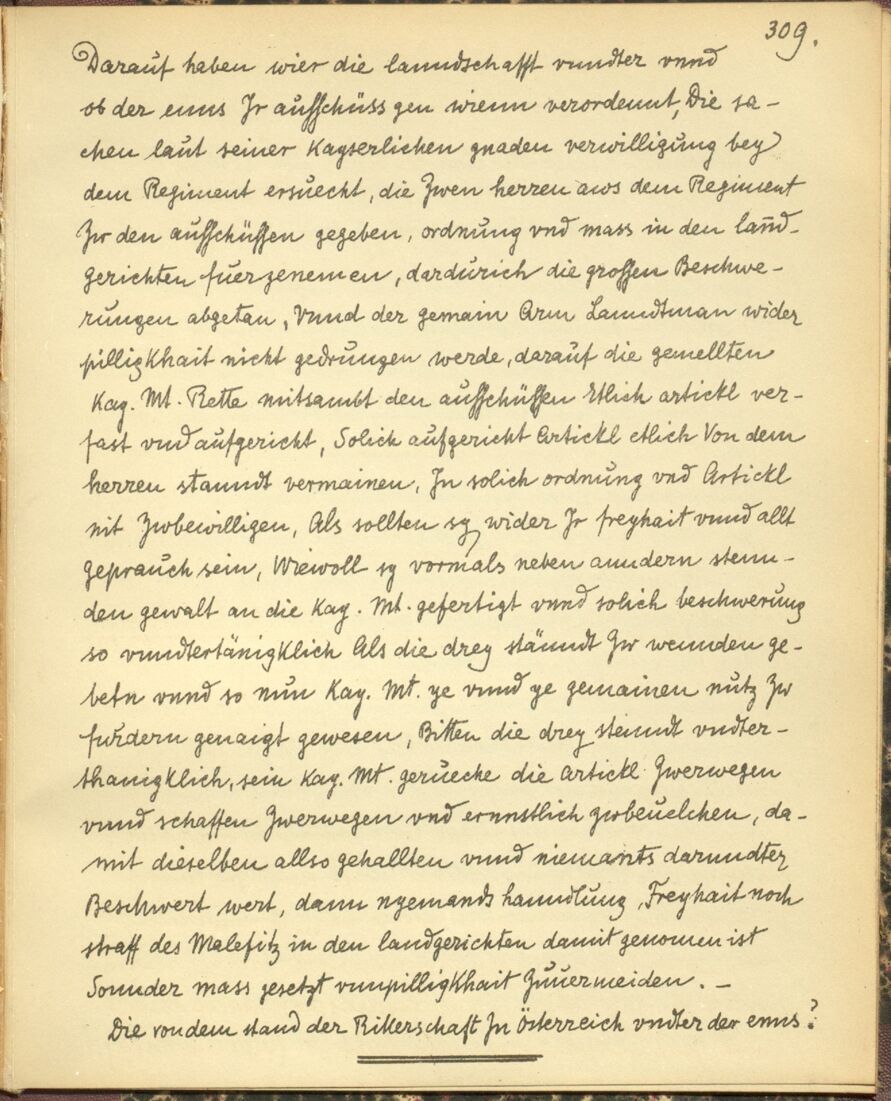 309.
Darauf haben wier die lanndschafft vnndter vnnd
ob der enns Jr aufschüss gen wienn verordennt, Die sa-
chen laut seiner Kayserlichen gnaden verwilligung bey
dem Regiment ersuecht, die Zwen herren aws dem Regiment
Zw den aufschüssen gegeben, ordnung vnd mass in den lannd-
gerichten fuerzenemen, dardurich die grossen Beschwe-
rungen abgetan, Vnnd der gemain Arm Lanndtman wider
pilligkhait nicht gedrungen werde, darauf die gemellten
Kay. Mt. Rette mitsambt den aufschüssen Etlich artickl ver-
fast vnd aufgericht, Solich aufgericht Artickl etlich Von dem
herren stanndt vermainen, Jn solich ordnung vnd Artickl
nit Zwbewilligen, Als sollten sy wider Jr freyhait vnnd allt
geprauch sein, Wiewoll sy vormals neben anndern stenn-
den gewalt an die Kay. Mt. gefertigt vnnd solich beschwerung
so vnndtertänigklich Als die drey stänndt Zw wennden ge-
betn vnnd so nun Kay. Mt. ye vnnd ye gemainen nutz Zw
furdern genaigt gewesen, Bitten die drey stenndt vndter-
thanigklich, sein Kay. Mt. geruecke die Artickl Zwerwegen
vnnd schaffen Zwerwegen vnd ernnstlich zwbeuelchen, da-
mit dieselben allso gehallten vnnd niemants darunndter
Beschwert wert, dann nyemands hanndlung, Freyhait noch
straff des Malefitz in den landgerichten damit genomen ist
Sonnder mass gesetzt vnnpilligkhait Zuuermeiden. -
Die von dem stand der Ritterschaft Jn Österreich vndter der enns?